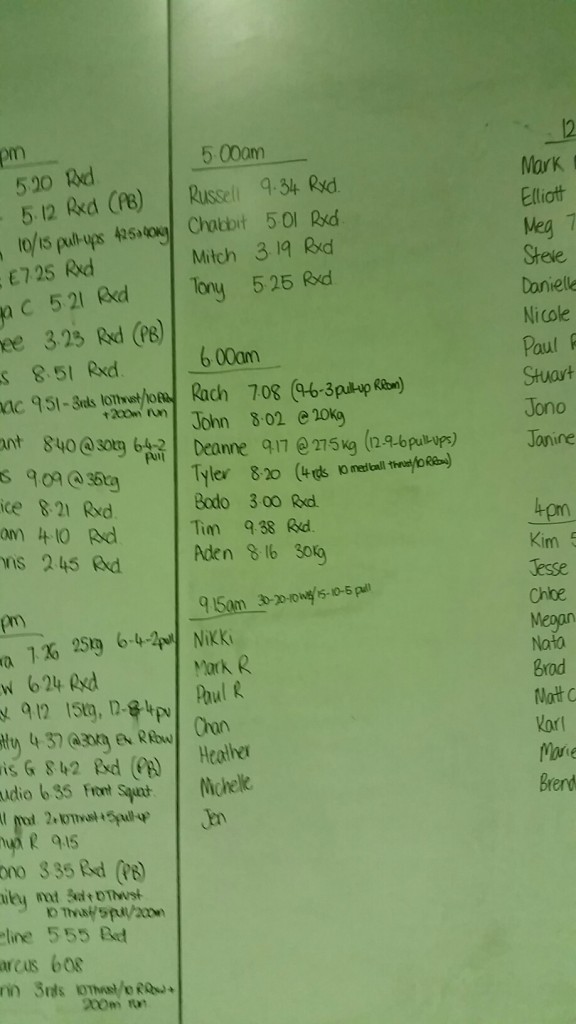 pm
5.20 Rxd
5.12 Rxd (PB)
10/15 pull-ups 42.5→40kg
E7.25 Rxd
ya C 5.21 Rxd
ee 3.23 Rxd (PB)
s 8.51 Rxd.
ac 9.51 - 3rds 10Thrust/10RRow
+200m run
ant 8.40 @30kg 6-4-2
pull
s 9.09 @35kg
ice 8.21 Rxd.
am 4.10 Rxd.
nris 2.45 Rxd
pm
ra 7.26 25kg 6-4-2pull
w 6.24 Rxd
x 9.12 15kg, 12-8-4pu
tty 4.37 @30kg Ex. R Row
is G 8.42 Rxd (PB)
udio 6.35 Front Squat.
ll mod. 2+10Thrust+5pull-up
nya R 9.15
ono 3.35 Rxd (PB)
ailey mod 3rd+10Thrust
10 Thrust/5pull/200m
eline 5.55 Rxd
arcus 6.08
rin 3rds 10Thrust/10 R Row +
200m run.
5.00am
Russell 9.34 Rxd.
Chabbit 5.01 Rxd.
Mitch 3.19 Rxd
Tony 5.25 Rxd.
6.00am
Rach 7.08 (9-6-3 pull-up RRom)
John 8.02 @ 20kg
Deanne 9.17 @ 27.5kg (12-9-6 pull-ups)
Tyler 8.20 (4rds 10 medball thrust/10 RRow)
Bodo 3.00 Rxd.
Tim 9.38 Rxd.
Aden 8.16 30kg
9.15am 30-20-10 WB/15-10-5 pull
Nikki
Mark R
Paul R
Chan
Heather
Michelle
Jen
12
Mark
Elliott
Meg 7
Steve
Danielle
Nicole
Paul
Stuart
Jono
Janine
4pm
Kim 5
Jesse
Chloe
Megan
Nata
Brad
Matt C
Karl
Marie
Brend